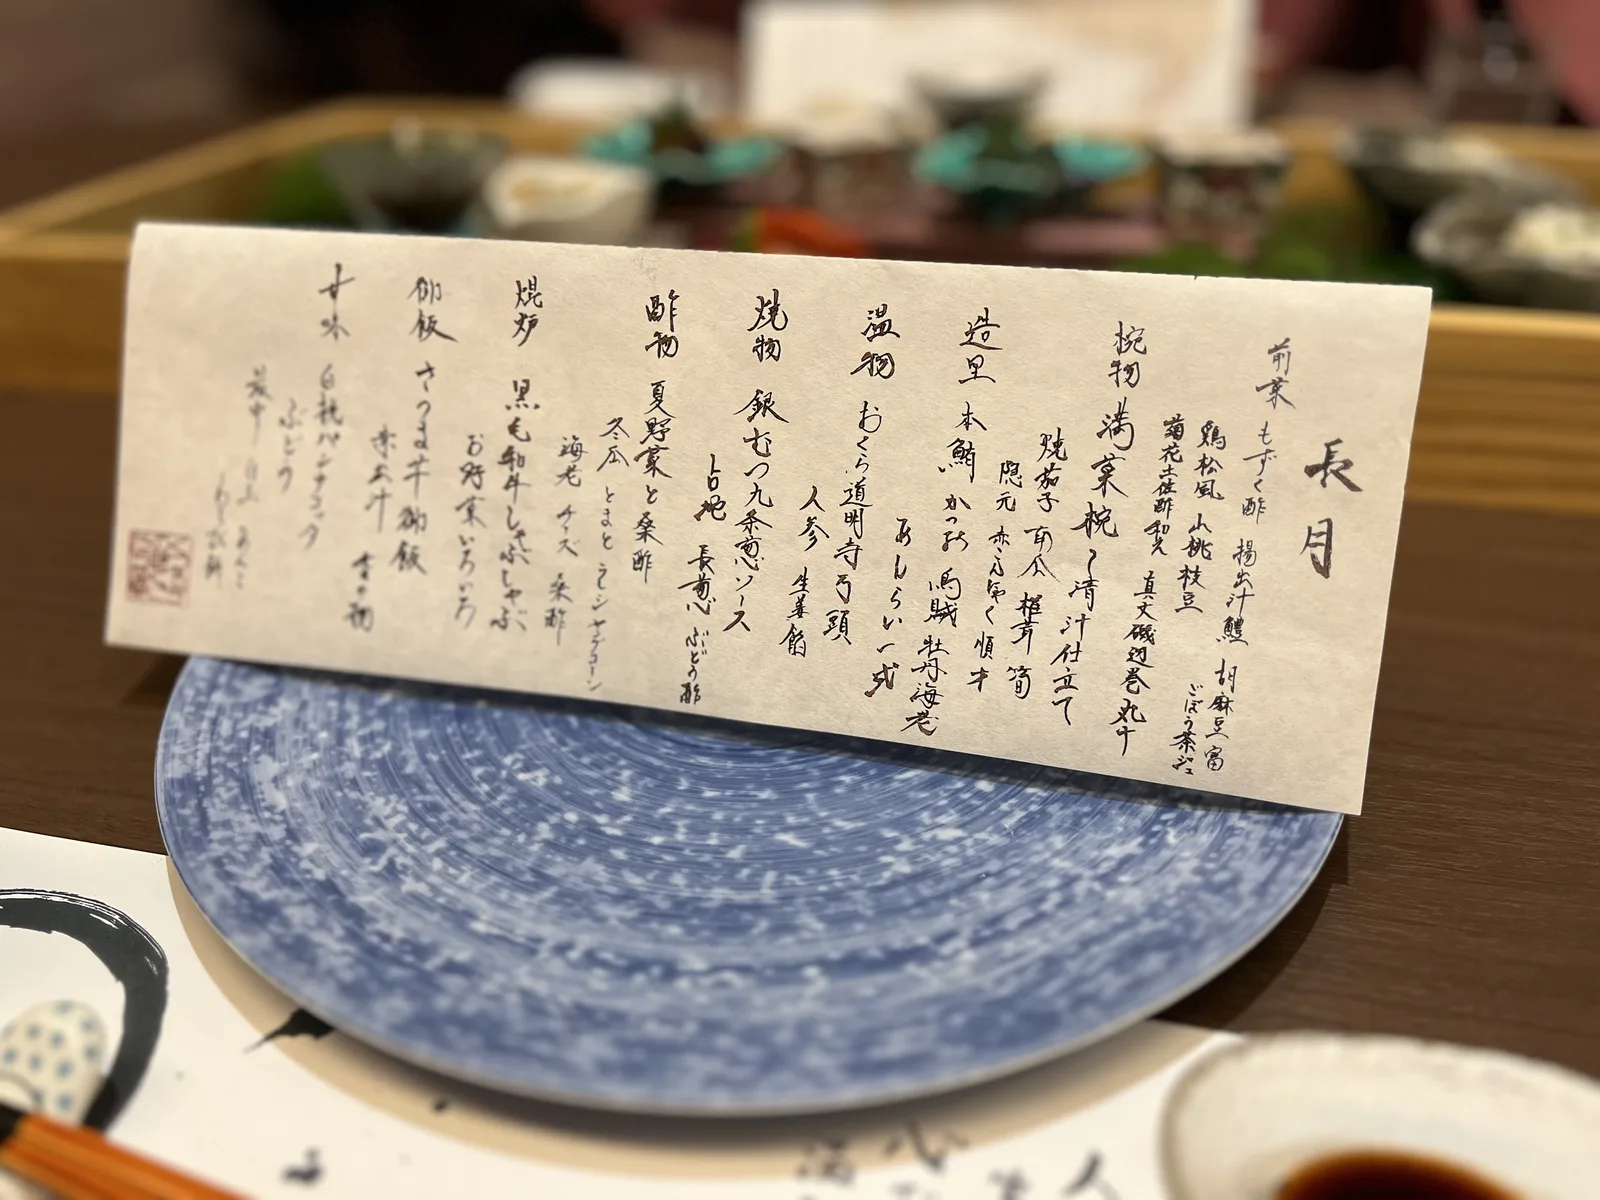 長月
前菜 もずく酢 揚出汁鱧 胡麻豆富
鶏松風 山桃 枝豆 ごぼう茶ジュ
菊花土佐酢和え 真丈磯辺巻 丸十
椀物 満菓椀 清汁仕立て
焼茄子 南瓜 椎茸 筍
隠元 順才
造里 本鮪 かつお 烏賊 牡丹海老
あしらい一式
温物 おくら道明寺弓頭
人参 生姜餡
焼物 銀むつ九条葱ソース
占地 長葱 ぶどう酢
酢物 夏野菜と桑酢
冬瓜 とまと ヤングコーン
海老 チーズ 桑酢
焜炉 黒毛和牛しゃぶしゃぶ
お野菜いろいろ
御飯 さつま芋御飯
赤出汁 香の物
甘味 白桃パンナコッタ
ぶどう
最中